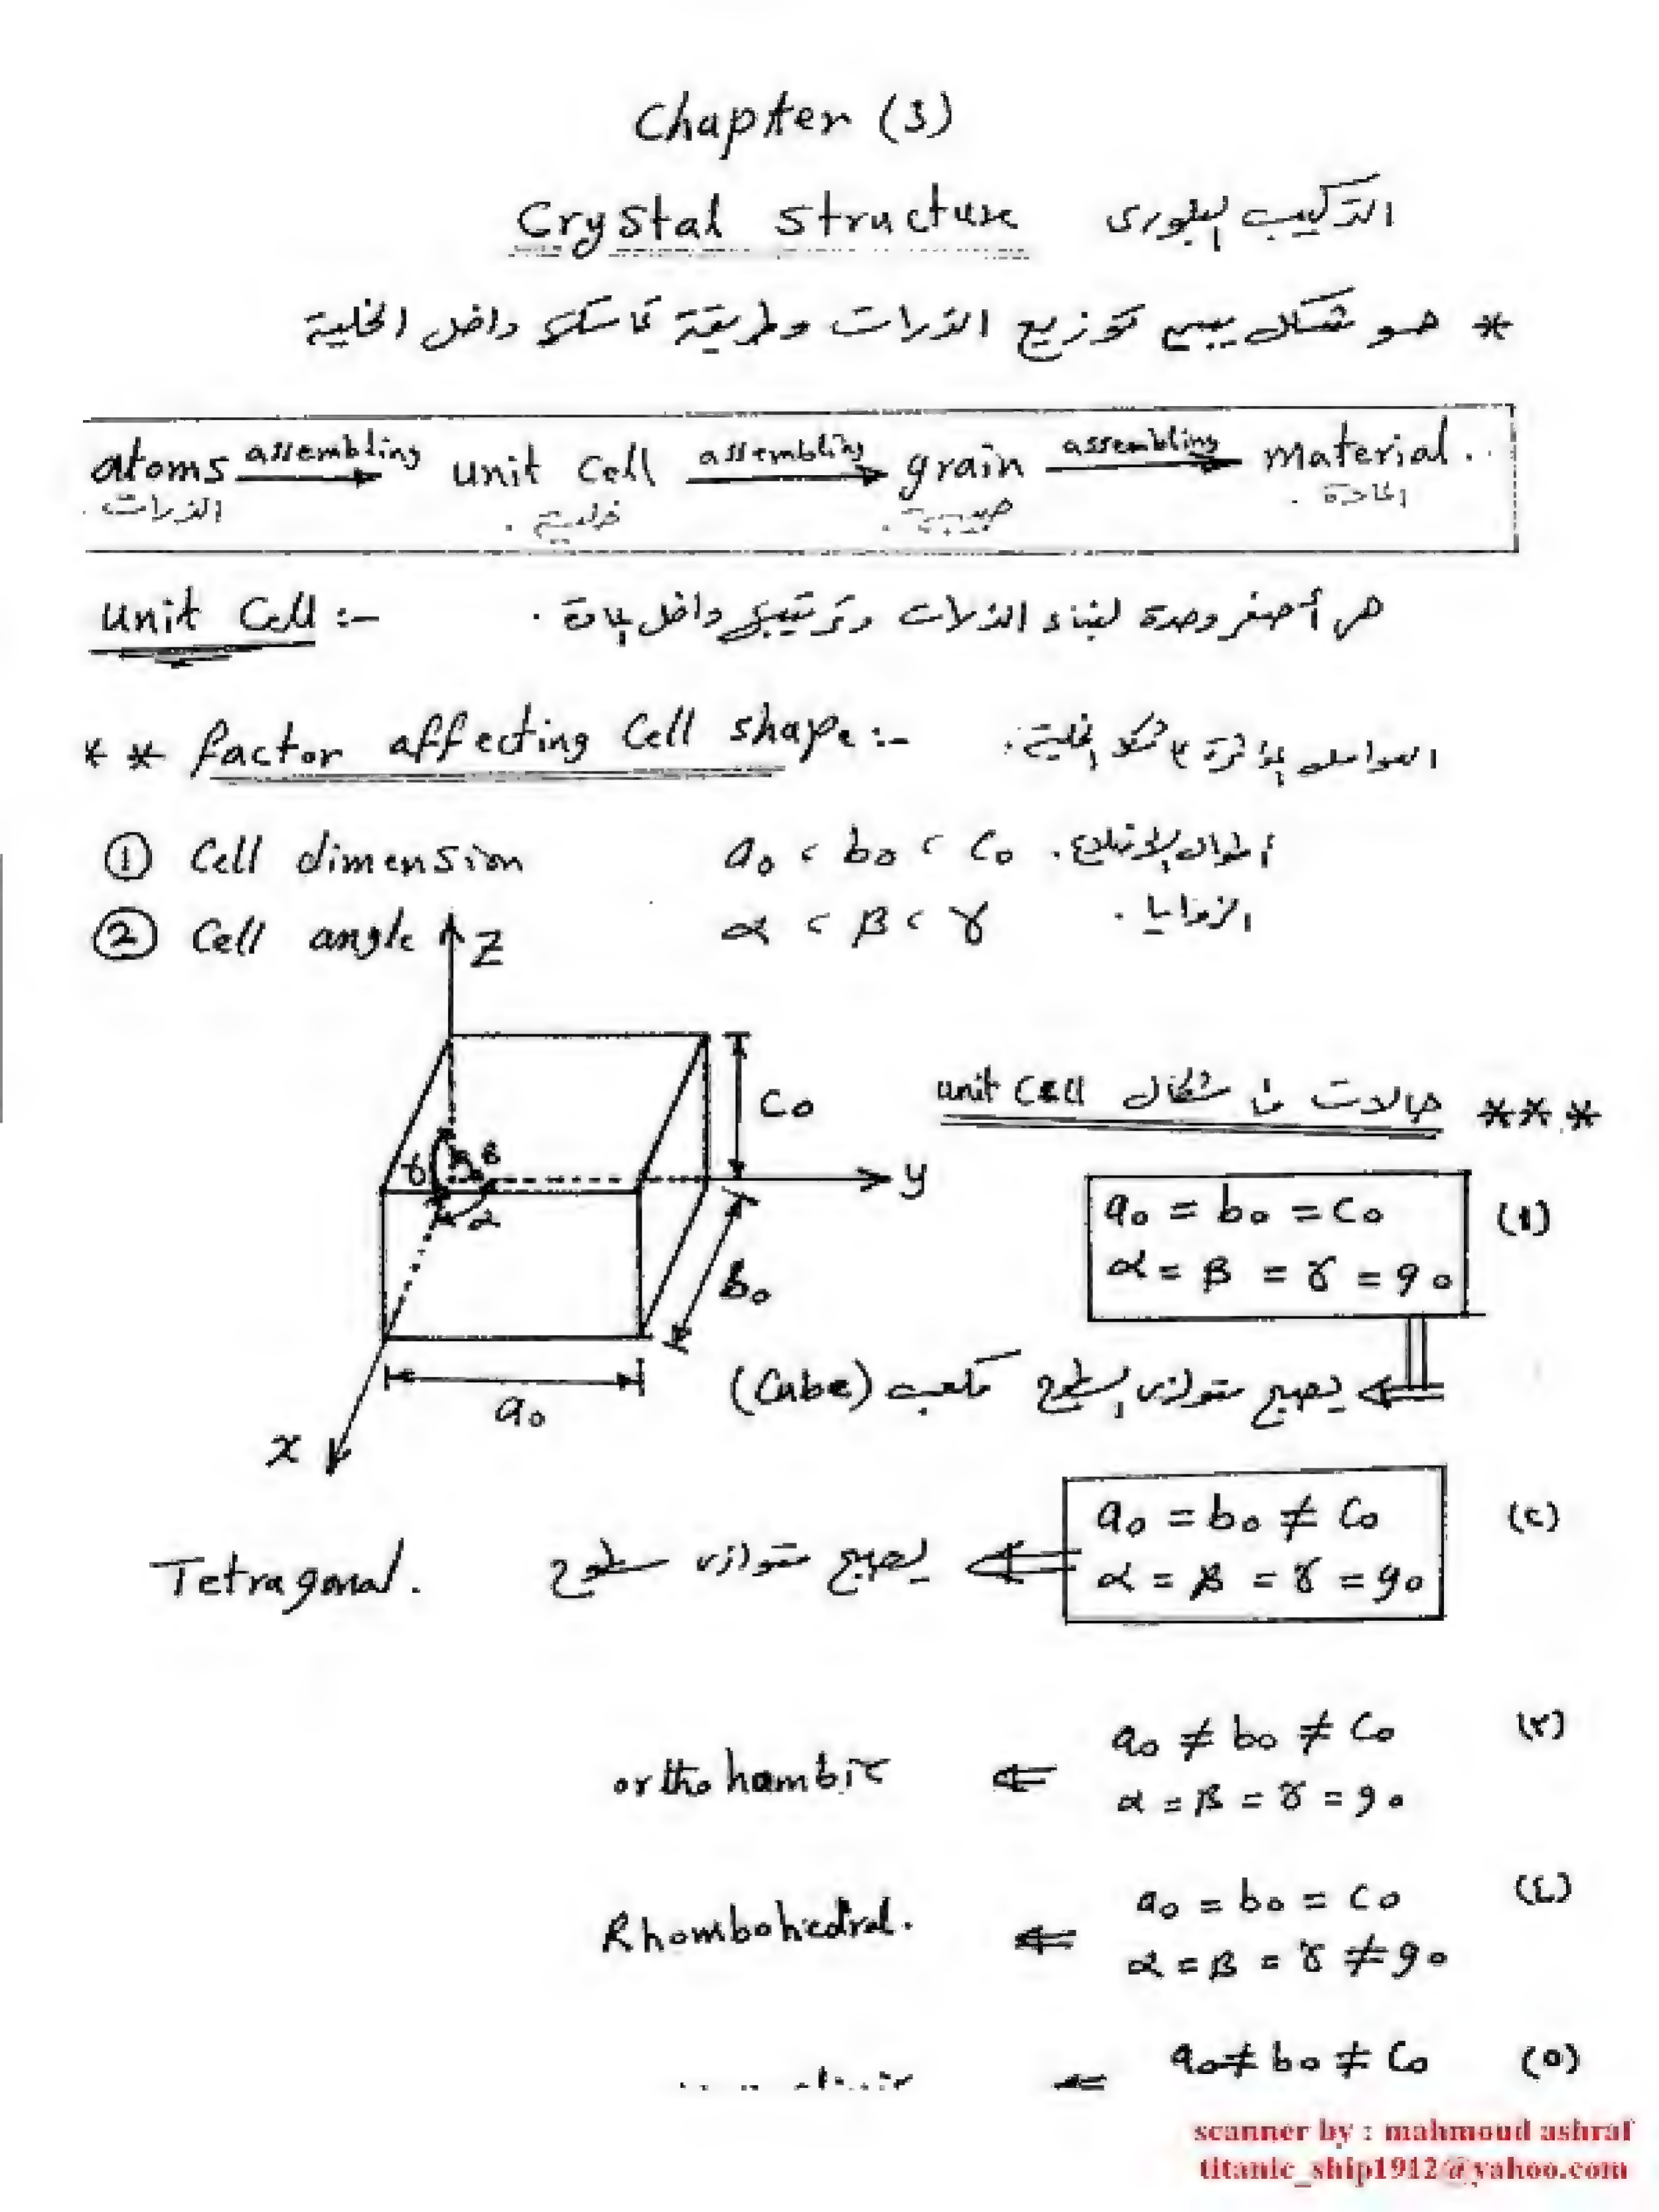 Chapter (3)
Crystal structure التركيب البلورى
* هو شكل يبين توزيع الذرات وطريقة تماسكها داخل الخلية
atoms assembling unit cell assembling grain assembling material.
الذرات. خلية. حبيبة. المادة.
unit Cell :- هى أصغر وحدة لبناء الذرات وترتيبها داخل المادة.
** factor affecting Cell shape :- العوامل المؤثرة على شكل الخلية:
① Cell dimension a₀ ، b₀ ، c₀ أطوال الاضلاع.
② Cell angle α ، β ، γ الزوايا.
z
c₀
*** حالات أشكال unit cell
γ β
α
y
(1) a₀ = b₀ = c₀
α = β = γ = 90
b₀
⇐ يصبح متوازى السطوح مكعب (Cube)
a₀
x
(٢) a₀ = b₀ ≠ c₀
α = β = γ = 90
⇐ يصبح متوازى سطوح Tetragonal.
(٣) a₀ ≠ b₀ ≠ c₀
α = β = γ = 90
⇐ orthohambic
(٤) a₀ = b₀ = c₀
α = β = γ ≠ 90
⇐ Rhombohedral.
(٥) a₀ ≠ b₀ ≠ c₀
⇐
scanner by : mahmoud ashraf
titanic_ship1912@yahoo.com